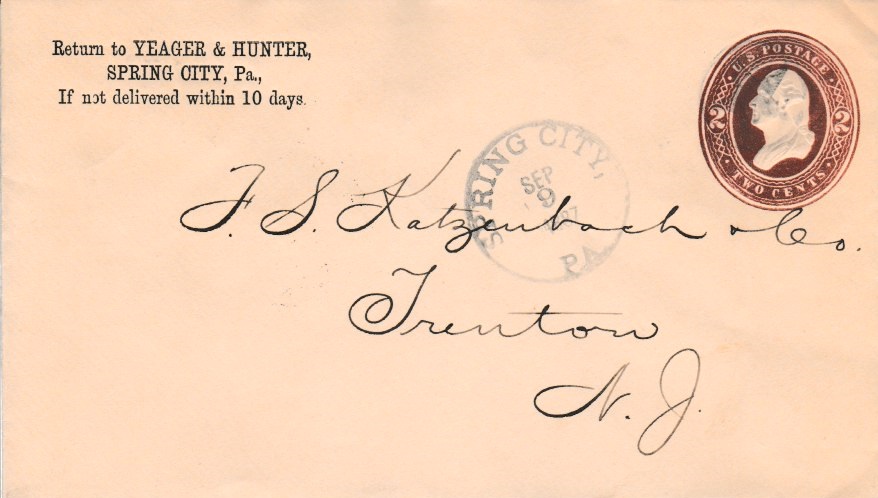 Return to YEAGER & HUNTER,
SPRING CITY, Pa.,
If not delivered within 10 days.
U.S. POSTAGE
2 2
TWO CENTS
SPRING CITY,
SEP
9
PA.
F. S. Katzenbach & Co.
Trenton
N. J.